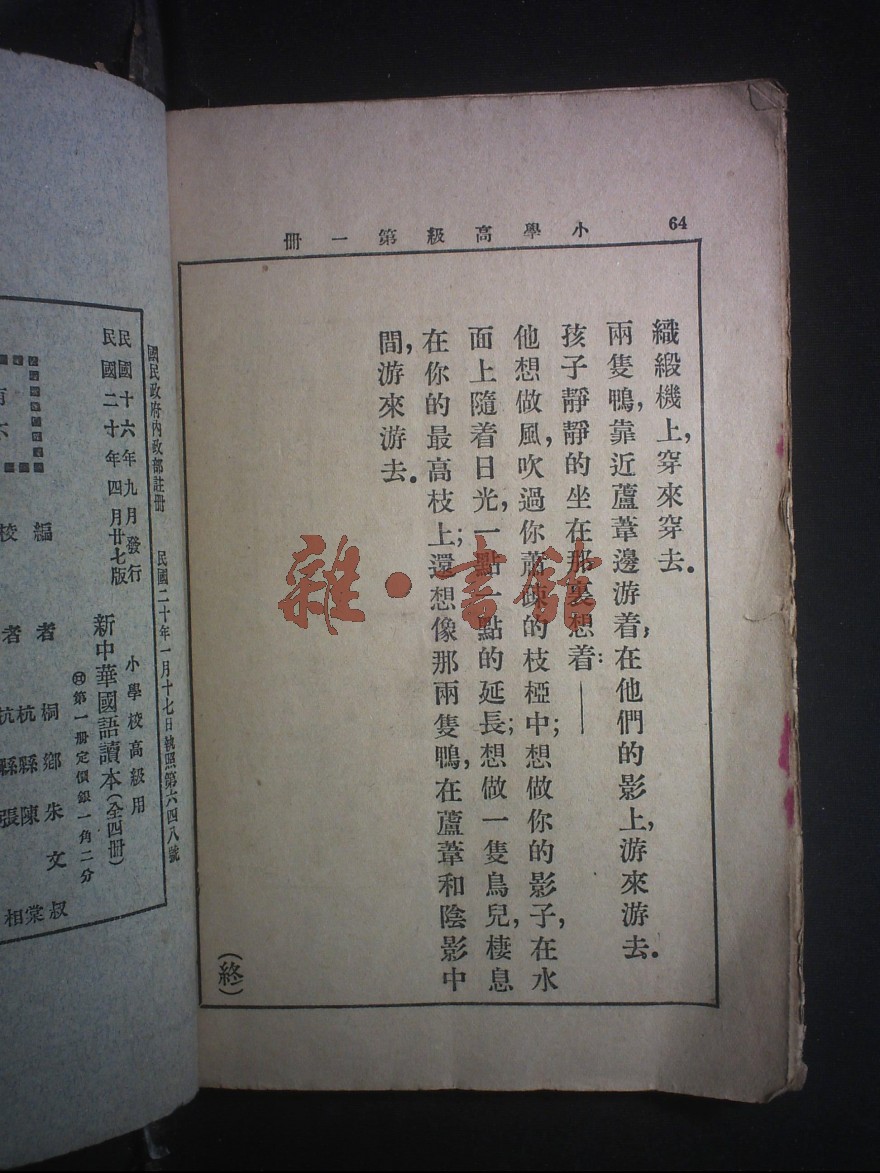 64
小學高級第一冊
織緞機上,穿來穿去。
兩隻鴨,靠近蘆葦邊游着,在他們的影上,游來游去。
孩子靜靜的坐在那裏想着:——
他想做風,吹過你蕭疎的枝椏中;想做你的影子,在水
面上隨着日光,一點一點的延長;想做一隻鳥兒,棲息
在你的最高枝上;還想像那兩隻鴨,在蘆葦和陰影中
間,游來游去。
(終)
雜·書館
國民政府內政部註冊 民國二十年一月十七日執照第六四八號
民國十六年九月發行
民國二十年四月廿七版
小學校高級用
新中華國語讀本(全四冊)
第一冊定價銀一角二分
編者 桐鄉朱文叔
杭縣陳棠
校者 杭縣張相